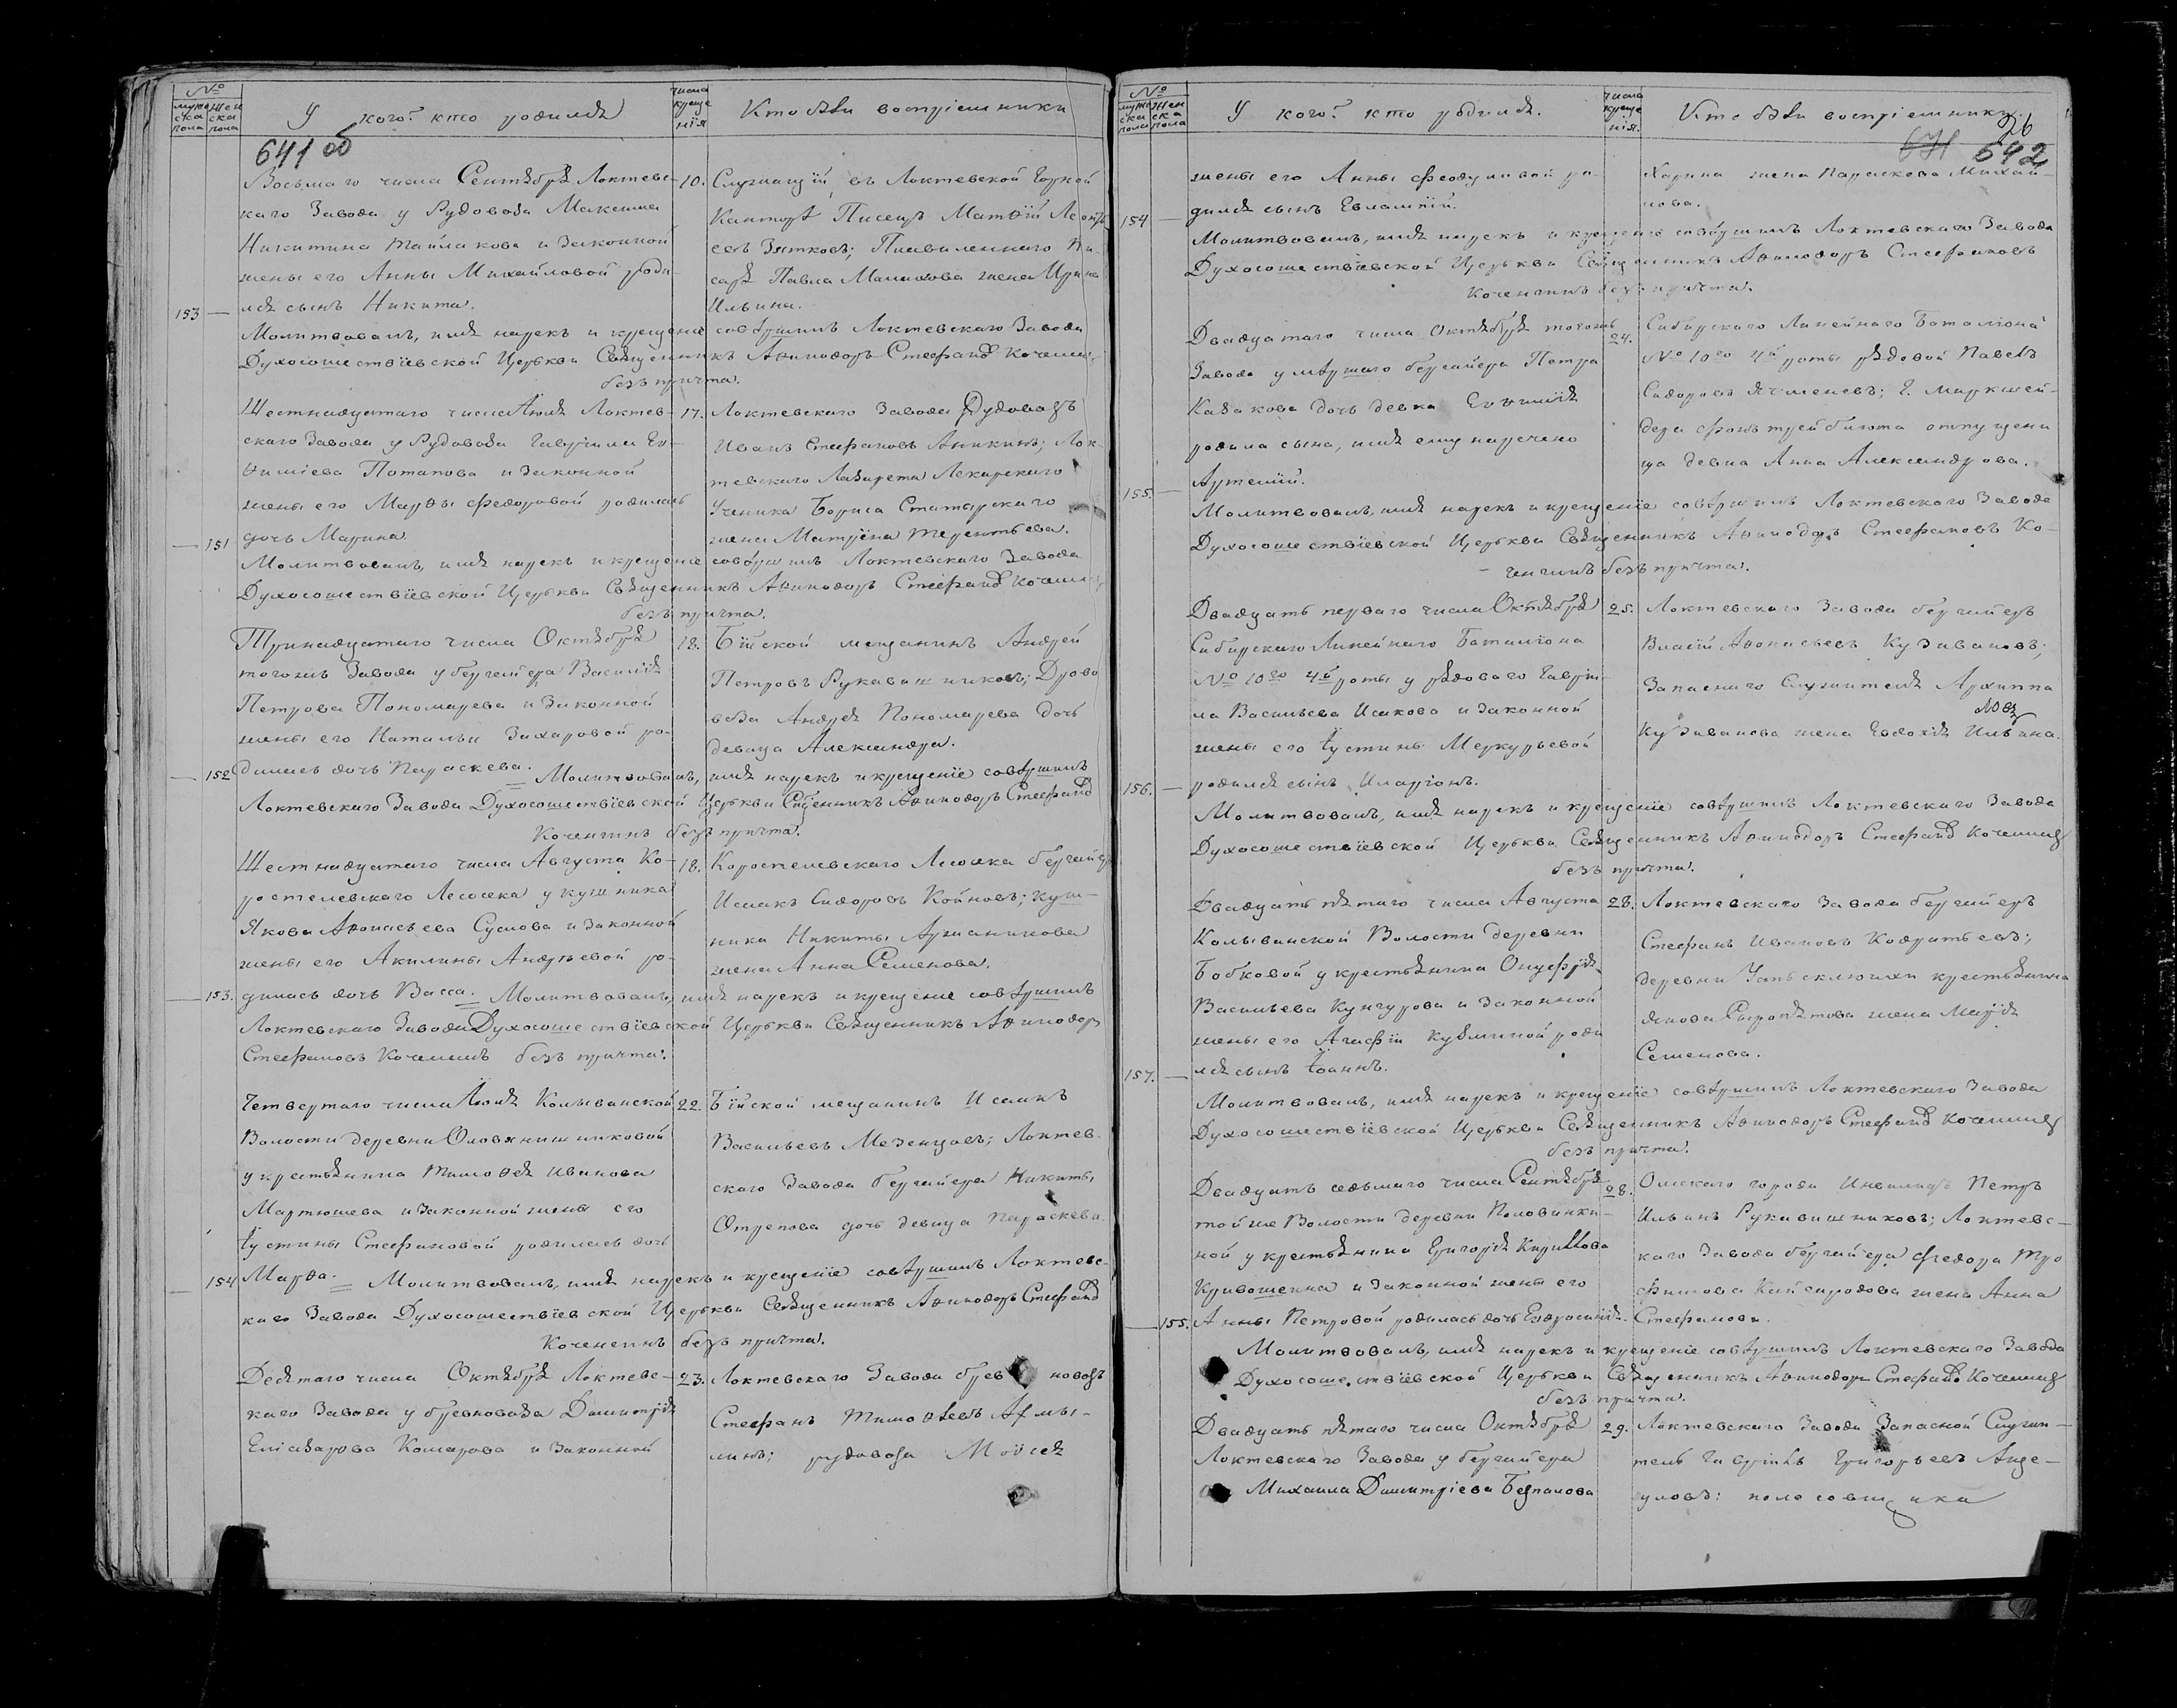 №
мужеска пола
женска пола
У кого? кто родился
числа крещенія
Кто были воспріемники
641 об
Восьмаго числа Сентября Локтевс-
каго Завода у Рудовоза Максима
Никитина Майлакова и Законной
жены его Анны Михайловой роди-
153 — лся сынъ Никита.
10. Служащій въ Локтевской Горной
Конторѣ Писецъ Матѳій
Зятковъ; Плавиленнаго Пи-
саря Павла Малахова жена Ирина
Ильина.
Молитвовалъ, имя нарекъ и крещеніе совершилъ Локтевскаго Завода
Духосошествіевской Церкви Священникъ Аѳинодоръ Стефановъ
безъ причта.
Шестнадцатаго числа Іюля Локтев-
скаго Завода у Рудовоза Гаврила Ев-
ѳиміева Потапова и Законной
жены его Марѳы Федоровой родилась
— 151 дочь Марина
17. Локтевскаго Завода Рудовозъ
Иванъ Стефановъ Аникинъ; Лок-
тевскаго Лазарета Лекарскаго
Ученика Бориса Статырскаго
жена Матрена Терентьева.
Молитвовалъ, имя нарекъ и крещеніе совершилъ Локтевскаго Завода
Духосошествіевской Церкви Священникъ Аѳинодоръ Стефановъ
безъ причта.
Тринадцатаго числа Октября
тогожъ Завода у бергайера Василія
Петрова Пономарева и Законной
жены его Натальи Захаровой ро-
— 152 дилась дочь Параскева.
18. Бійской мещанинъ Андрей
Петровъ Рукавишниковъ; Дрово
воза Андрея Пономарева дочь
девица Александра.
Молитвовалъ, имя нарекъ и крещеніе совершилъ
Локтевскаго Завода Духосошествіевской Церкви Священникъ Аѳинодоръ Стефановъ
Коченгинъ безъ причта.
Шестнадцатаго числа Августа Ко-
ростелевскаго Лесосека у кушника
Якова Аѳонасьева Суслова и Законной
жены его Акилины Андреевой ро-
— 153. дилась дочь Васса.
18. Коростелевскаго Лесосека бергайеръ
Исаакъ Сидоровъ Койновъ; куш-
ника Никиты Аржанникова
жена Анна Семенова.
Молитвовалъ, имя нарекъ и крещеніе совершилъ
Локтевскаго Завода Духосошествіевской Церкви Священникъ Аѳинодоръ
Стефановъ Коченгинъ безъ причта.
Четвертаго числа Іюля Колыванской
Волости деревни Оловянишниковой
у крестьянина Тимоѳея Иванова
Мартюшева и Законной жены его
Іустины Стефановой родилась дочь
154 Марѳа.
22. Бійской мещанинъ Исаакъ
Васильевъ Мезенцовъ; Локтев-
скаго Завода бергайера Никиты
Отрепова дочь девица Параскева
Молитвовалъ, имя нарекъ и крещеніе совершилъ Локтевс-
каго Завода Духосошествіевской Церкви Священникъ Аѳинодоръ Стефановъ
Коченгинъ безъ причта.
Десятаго числа Октября Локтевс-
каго Завода у бревновоза Димитрія
Елисазарова Комарова и Законной
23. Локтевскаго Завода бревновозъ
Стефанъ Тимоѳеевъ
рудовоза Моисея
№
мужеска пола
женска пола
У кого? кто родился.
числа крещенія.
Кто были воспріемники.
26
641 642
жены его Анны Феодуловой ро-
154 — дился сынъ Евлампій.
Харина жена Параскева Михай-
лова.
Молитвовалъ, имя нарекъ и крещеніе совершилъ Локтевскаго Завода
Духосошествіевской Церкви Священникъ Аѳинодоръ Стефановъ
Коченгинъ безъ причта.
Двадцатаго числа Октября тогожъ
Завода умершаго бергайера Петра
Казакова дочь девка Евѳимія
родила сына, имя ему наречено
155. — Артемій.
24. Сибирскаго Линейнаго Баталіона
№ 10го 4й роты рядовой Павелъ
Сидоровъ Ячменевъ; Г. Маркшей-
дера отпущени
ца девка Анна Александрова.
Молитвовалъ, имя нарекъ и крещеніе совершилъ Локтевскаго Завода
Духосошествіевской Церкви Священникъ Аѳинодоръ Стефановъ Ко-
ченгинъ безъ причта.
Двадцать перваго числа Октября
Сибирскаго Линейнаго Баталіона
№ 10го 4й роты у рядоваго Гаври-
ла Васильева Исакова и Законной
жены его Іустины Меркурьевой
156. — родился сынъ Иларіонъ.
25. Локтевскаго Завода бергайеръ
Власій Аѳонасьевъ Кузивановъ;
Запаснаго Служителя Архиппа
Кузиванова жена Евдокія Ильина.
Молитвовалъ, имя нарекъ и крещеніе совершилъ Локтевскаго Завода
Духосошествіевской Церкви Священникъ Аѳинодоръ Стефановъ Коченгинъ
безъ причта.
Двадцать пятаго числа Августа
Колыванской Волости деревни
Бобковой у крестьянина Онуфрія
Васильева Кунгурова и Законной
жены его Агафіи Кузминой роди
157. — лся сынъ Іоаннъ.
28. Локтевскаго Завода бергайеръ
Стефанъ Ивановъ Кодратьевъ;
деревни крестьянина
Якова Сыропятова жена Марія
Семенова.
Молитвовалъ, имя нарекъ и крещеніе совершилъ Локтевскаго Завода
Духосошествіевской Церкви Священникъ Аѳинодоръ Стефановъ Коченгинъ
безъ причта.
Двадцать седьмаго числа Сентября
той же Волости деревни Половинки-
ной у крестьянина Григорія Кирилова
Кривошеина и Законной жены его
— 155. Анны Петровой родилась дочь Евфросинія.
28. Омскаго города Инвалидъ Петръ
Ильинъ Рукавишниковъ; Локтевс-
каго Завода бергайера Федора Тро
фимова Кайгородова жена Анна
Стефанова.
Молитвовалъ, имя нарекъ и крещеніе совершилъ Локтевскаго Завода
Духосошествіевской Церкви Священникъ Аѳинодоръ Стефановъ Коченгинъ
безъ причта.
Двадцать пятаго числа Октября
Локтевскаго Завода у бергайера
Михаила Димитріева Безпалова
29. Локтевскаго Завода Запасной Служи-
тель Гаврілъ Григорьевъ Анце-
уловъ: полосовщика